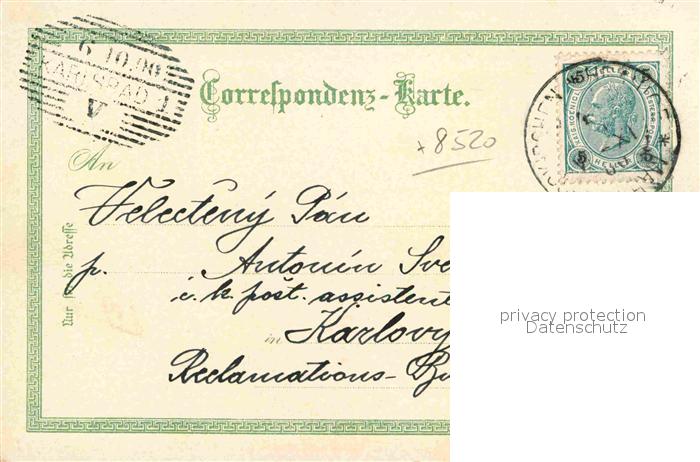 6.10.00
KARLSBAD 1
V
Correspondenz-Karte.
+8520
5 HELLER 5
An
Velectěný Pán
p. Antonín Sve
c. k. pošt. assistent
in Karlovy
Reclamations-
Nur für die Adresse
privacy protection
Datenschutz